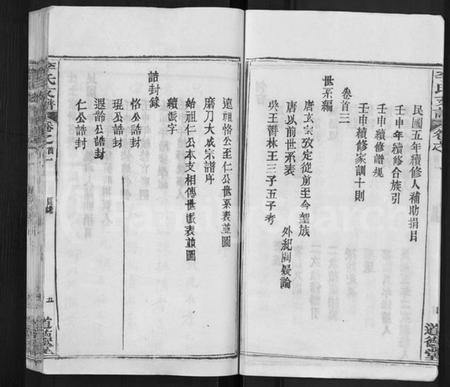 民國五年續修人補助捐目
壬申年續修合族引
壬申續修譜規
壬申續修家訓十則
卷首三
世系編
唐玄宗敕定從前至今望族
唐以前世系表
外紀闕疑論
吳王暨林王三子五子考
遠祖恪公至仁公世系表並圖
磨刀大成宗譜序
始祖仁公本支相傳世系表並圖
續派字
誥封錄
恪公誥封
琨公誥封
遐齡公誥封
仁公誥封
李氏支譜
五
道德堂
道德堂